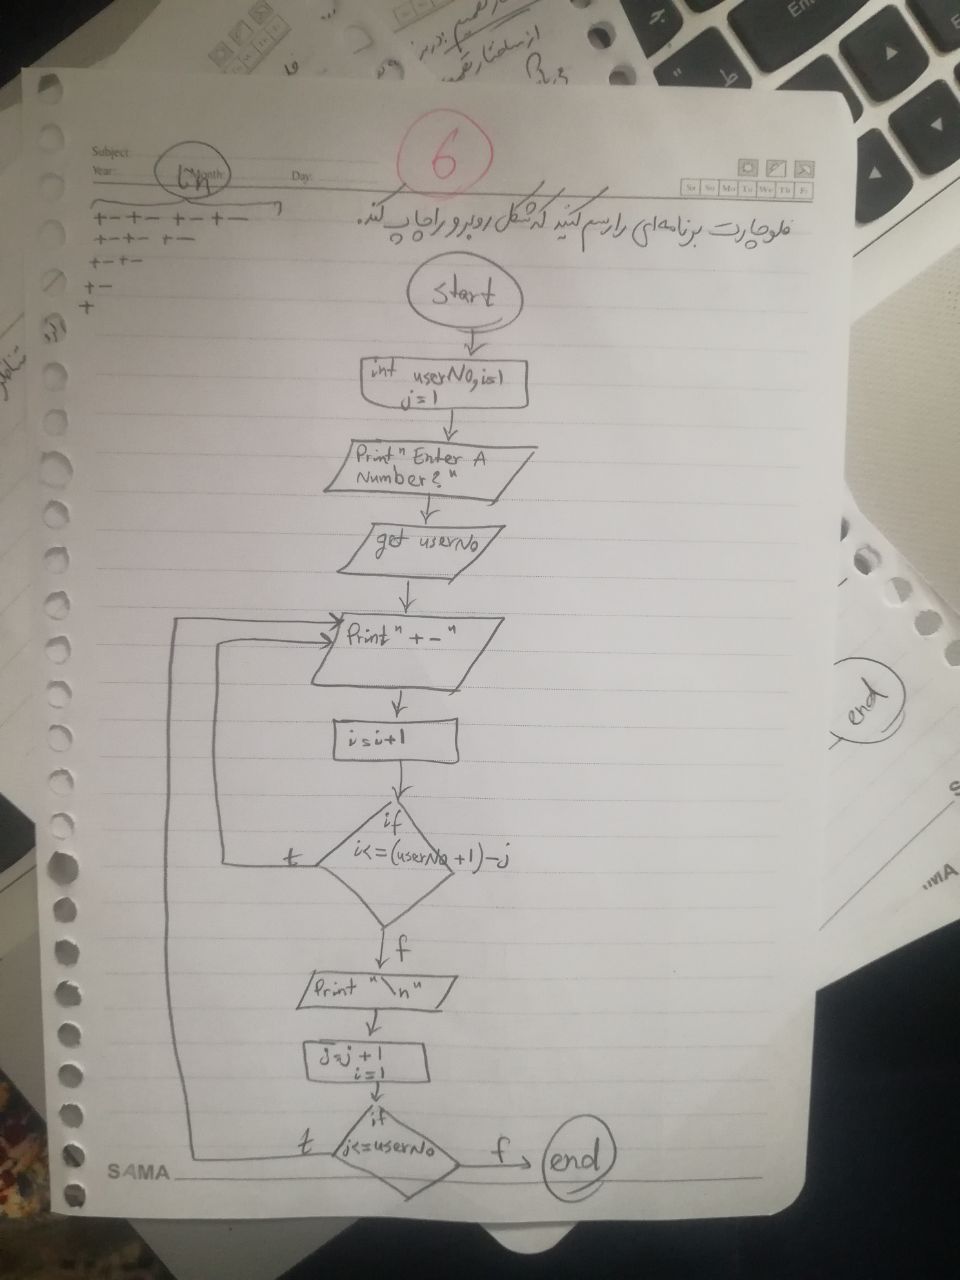 Subject:
Year: Month: Day:
6
Sa Su Mo Tu We Th Fr
فلوچارت برنامه‌ای را رسم کنید که شکل روبرو را چاپ کند.
+-+- +-+-
+-+- +-
+-+-
+-
+
start
int userNo, i=1
j=1
Print "Enter A
Number?"
get userNo
Print "+-"
i=i+1
if
i<=(userNo+1)-j
t
f
Print "\n"
j=j+1
i=1
if
j<=userNo
t
f
end
SAMA
end
Enter